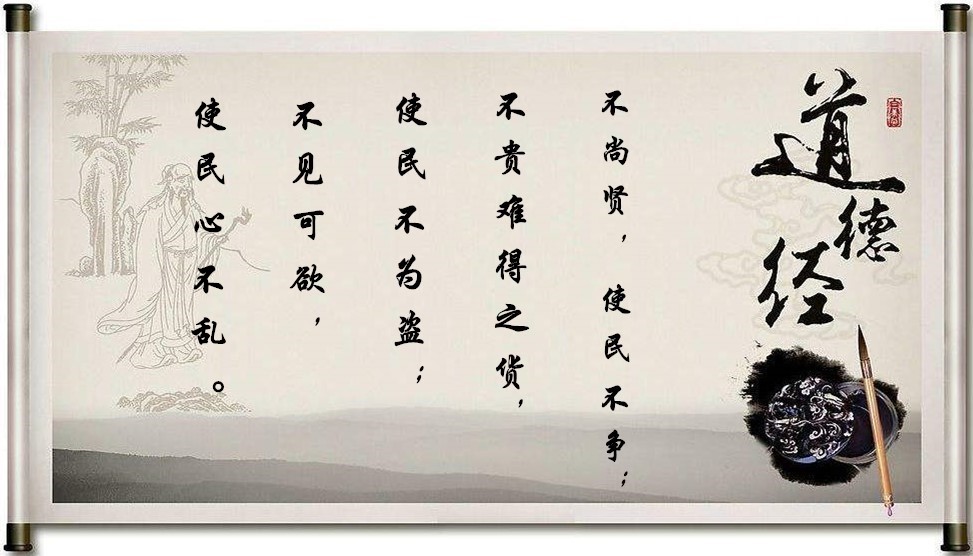 道德经
不尚贤，使民不争；
不贵难得之货，
使民不为盗；
不见可欲，
使民心不乱。